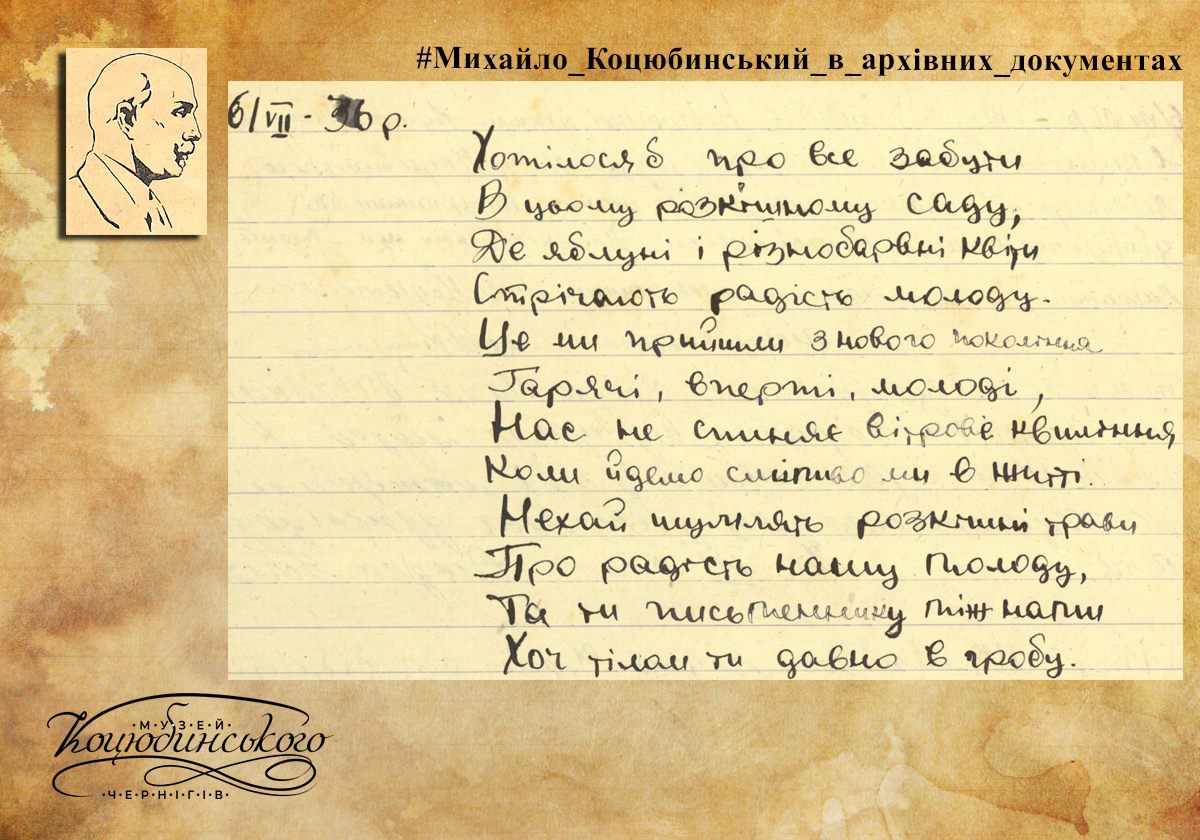 #Михайло_Коцюбинський_в_архівних_документах
6/VII - 36 р.
Хотілося б про все забути
В цьому розкішному саду,
Де яблуні і різнобарвні квіти
Стрічають радість молоду.
Це ми прийшли з нового покоління
Гарячі, вперті, молоді,
Нас не спиняє вітрове квиління,
Коли йдемо сміливо ми в житті.
Нехай шумлять розкішні трави
Про радість нашу молоду,
Та ти письменнику між нами
Хоч тілом ти давно в гробу.
МУЗЕЙ
Коцюбинського
ЧЕРНІГІВ